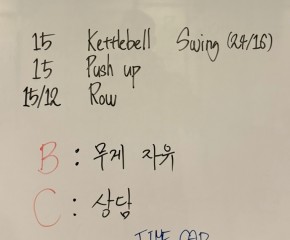 15 Kettlebell Swing (24/16)
15 Push up
15/12 Row
B : 무게 자유
C : 상담
TIME CAP